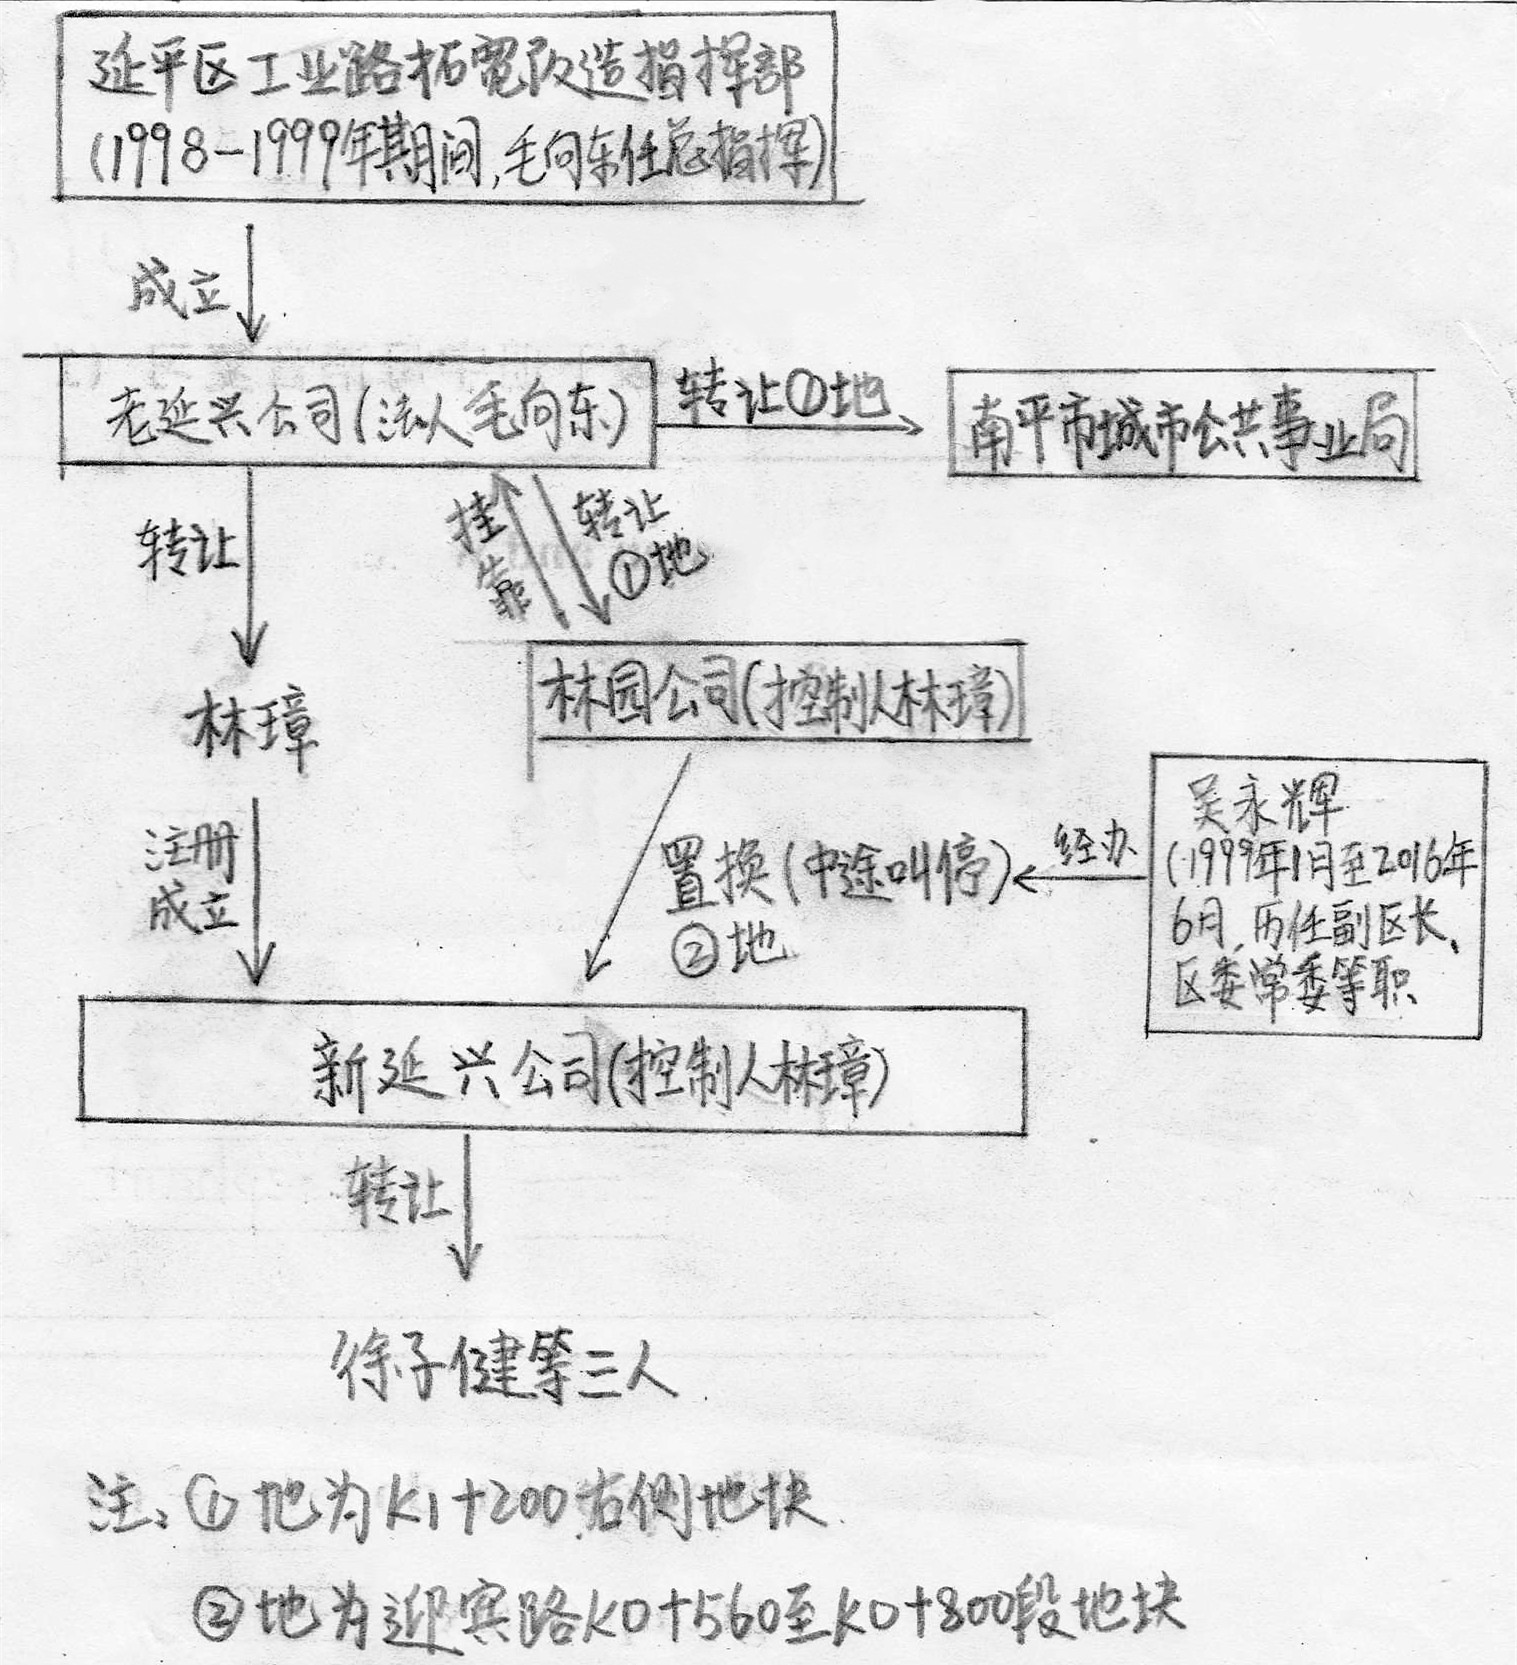 延平区工业路拓宽改造指挥部
(1998-1999年期间,毛向东任总指挥)
成立
老延兴公司(法人毛向东)
转让①地
南平市城市公共事业局
转让
挂靠
转让
①地
林璋
林园公司(控制人林璋)
注册
成立
置换(中途叫停)
②地
经办
吴永辉
(1999年1月至2016年
6月,历任副区长、
区委常委等职
新延兴公司(控制人林璋)
转让
徐子健等三人
注:①地为K1+200右侧地块
②地为迎宾路K0+560至K0+800段地块